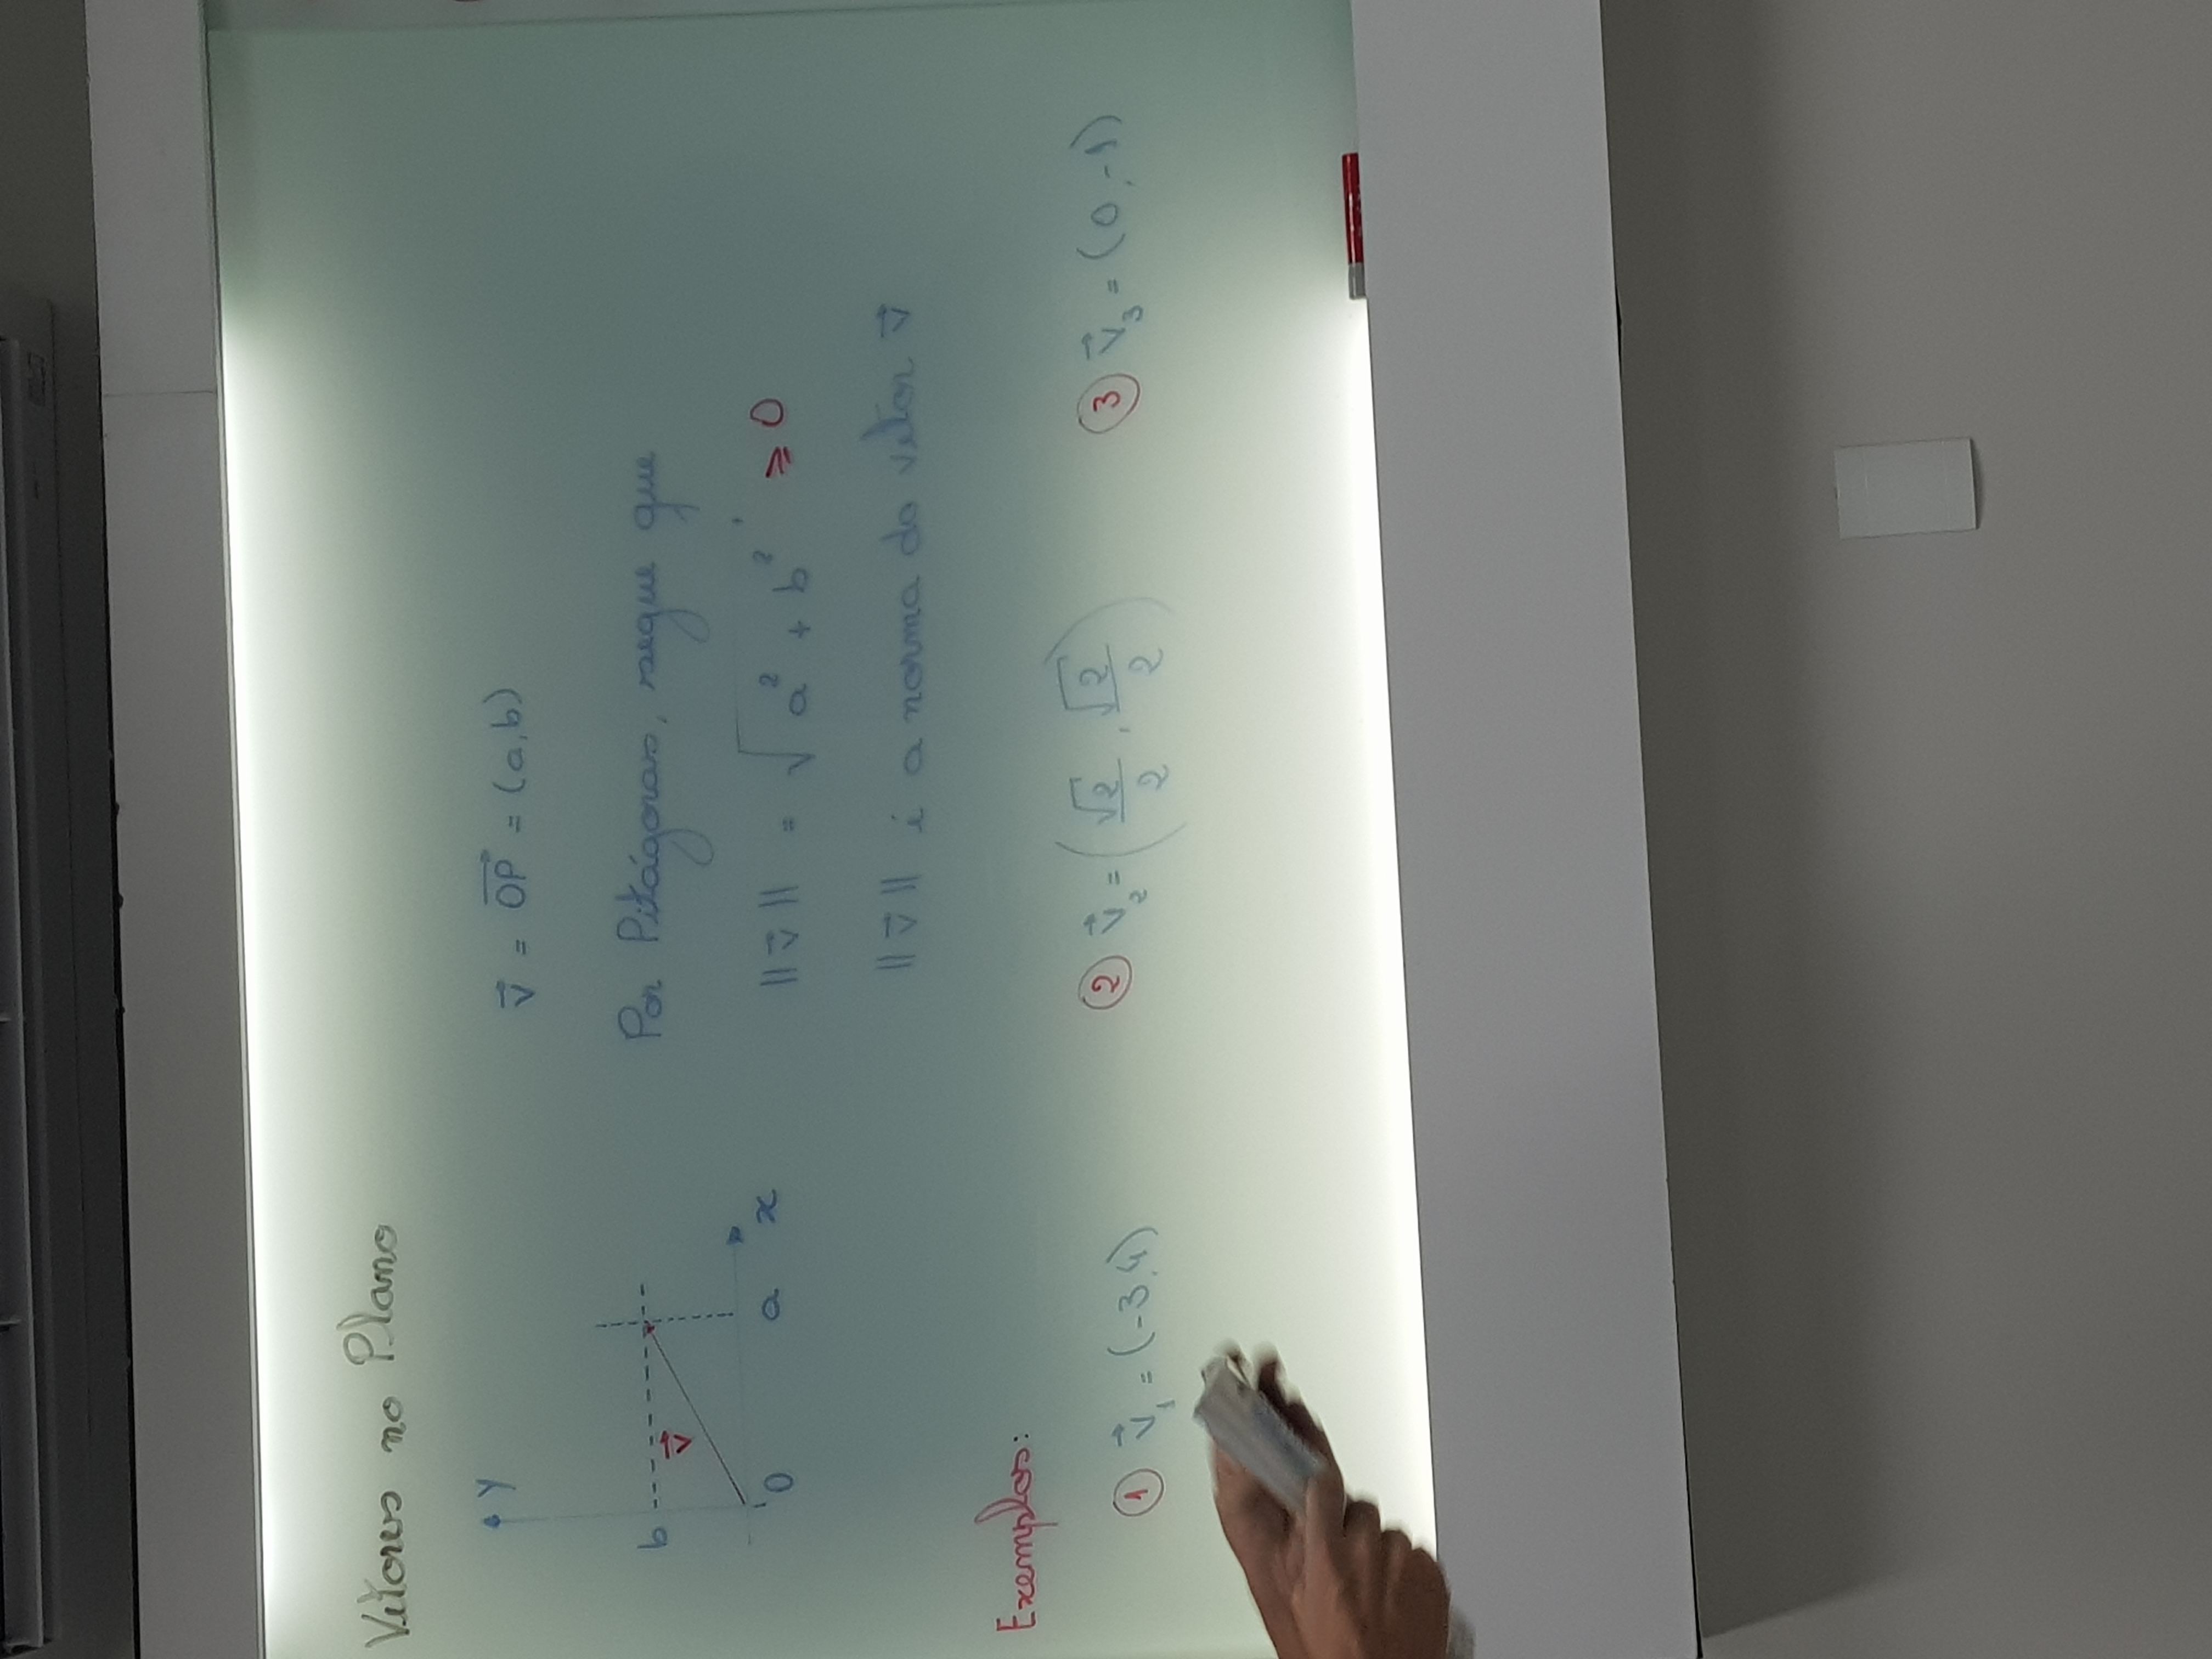 Vetores no Plano
y
v⃗ = OP⃗ = (a,b)
b
v⃗
Por Pitágoras, segue que
0
a
x
||v⃗|| = √(a² + b²) ⩾ 0
||v⃗|| é a norma do vetor v⃗
Exemplos:
① v⃗₁ = (-3,4)
② v⃗₂ = (√2/2, √2/2)
③ v⃗₃ = (0,-1)